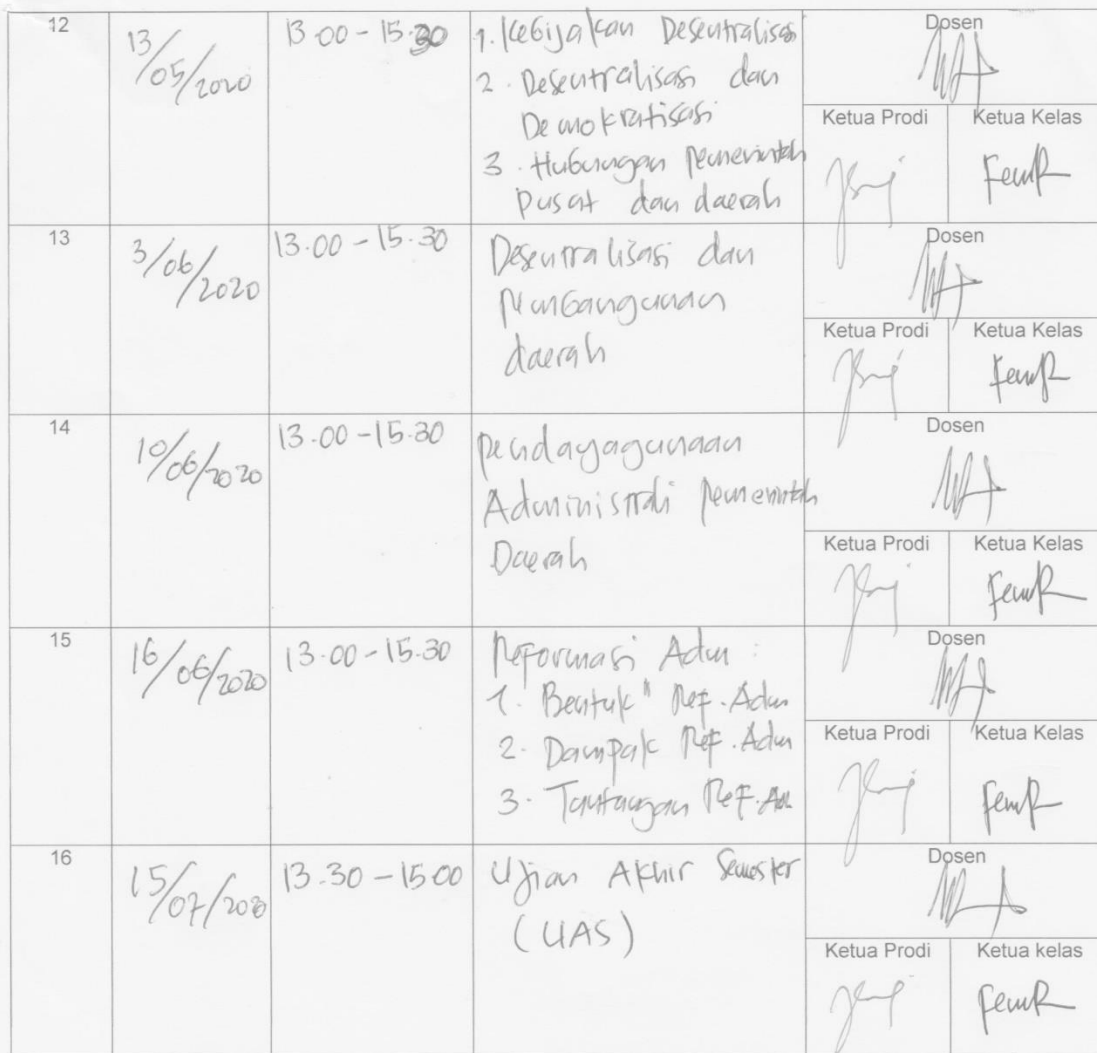 12
13/05/2020
13.00 - 15.30
1. Kebijakan Desentralisasi
2. Desentralisasi dan
Demokratisasi
3. Hubungan Pemerintah
Pusat dan daerah
Dosen
Ketua Prodi
Ketua Kelas
13
3/06/2020
13.00 - 15.30
Desentralisasi dan
Pembangunan
daerah
Dosen
Ketua Prodi
Ketua Kelas
14
10/06/2020
13.00 - 15.30
Pendayagunaan
Administrasi Pemerintah
Daerah
Dosen
Ketua Prodi
Ketua Kelas
15
16/06/2020
13.00 - 15.30
Reformasi Adm :
1. Bentuk" Ref. Adm
2. Dampak Ref. Adm
3. Tantangan Ref. Adm
Dosen
Ketua Prodi
Ketua Kelas
16
15/07/2020
13.30 - 15.00
Ujian Akhir Semester
(UAS)
Dosen
Ketua Prodi
Ketua kelas